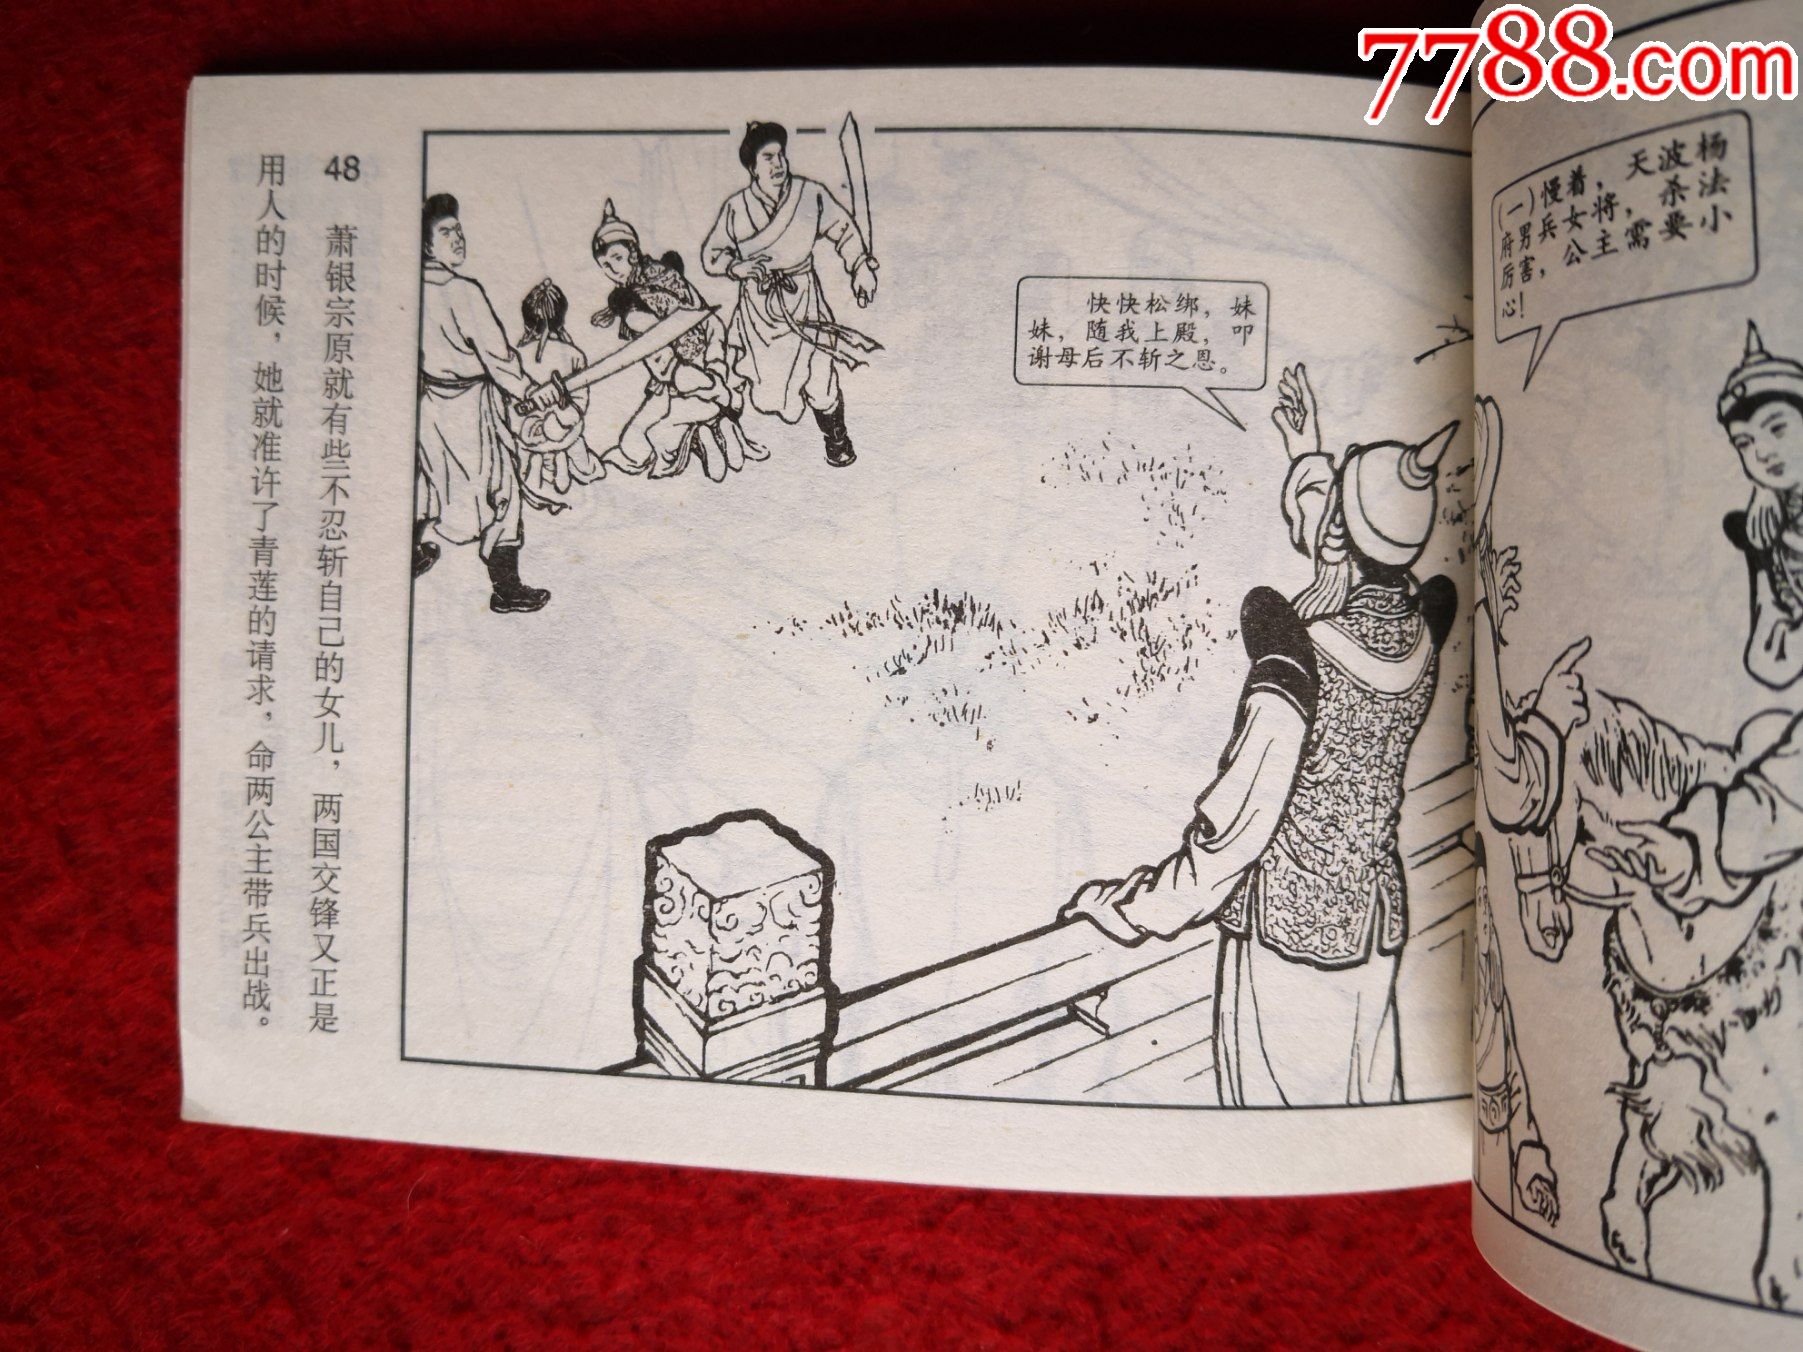 7788.com
48 萧银宗原就有些不忍斩自己的女儿，两国交锋又正是
用人的时候，她就准许了青莲的请求，命两公主带兵出战。
快快松绑，妹
妹，随我上殿，叩
谢母后不斩之恩。
(一)慢着，天波杨
府男兵女将，杀法
厉害，公主需要小
心！